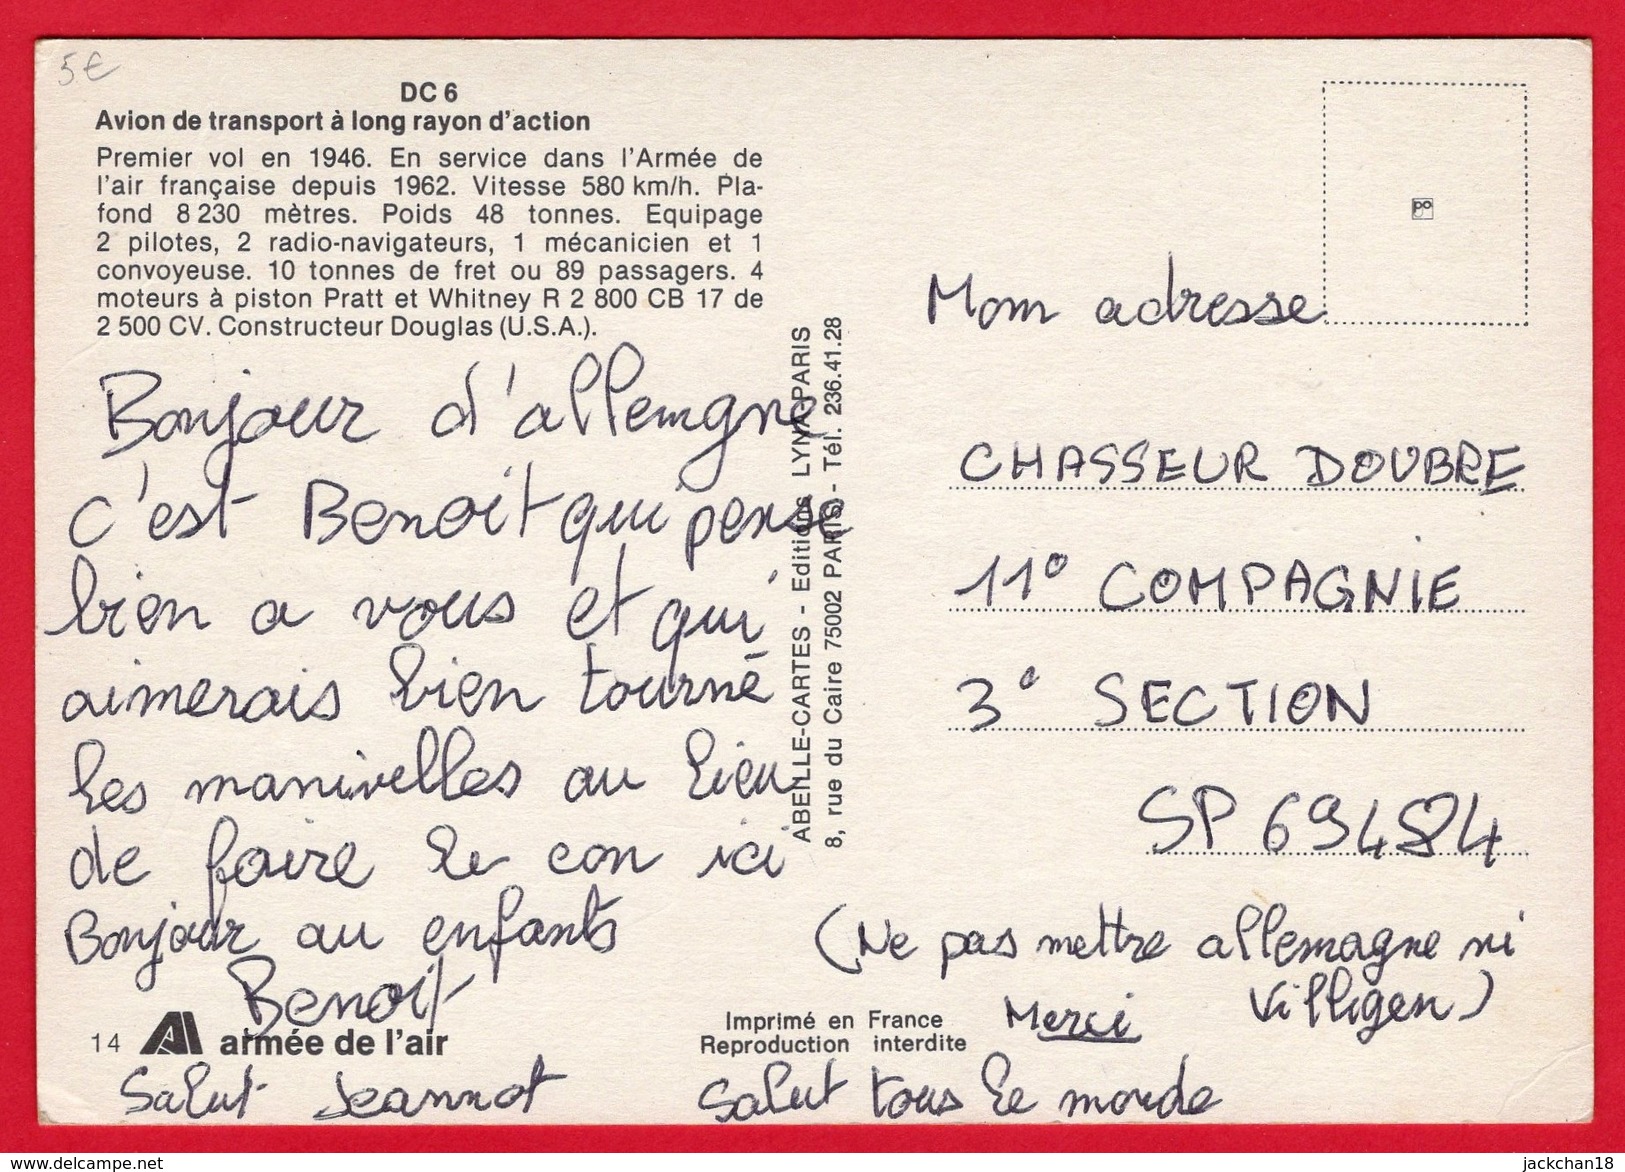 5€
DC 6
Avion de transport à long rayon d'action
Premier vol en 1946. En service dans l'Armée de
l'air française depuis 1962. Vitesse 580 km/h. Pla-
fond 8 230 mètres. Poids 48 tonnes. Equipage
2 pilotes, 2 radio-navigateurs, 1 mécanicien et 1
convoyeuse. 10 tonnes de fret ou 89 passagers. 4
moteurs à piston Pratt et Whitney R 2 800 CB 17 de
2 500 CV. Constructeur Douglas (U.S.A.).
Bonjour d'allemgne
c'est Benoit qui pense
bien a vous et qui
aimerais bien tourné
les manivelles au lieu
de faire le con ici
Bonjour au enfants
Benoit
14 armée de l'air
Salut Jeannot
ABEILLE-CARTES - Editions LYNA-PARIS
8, rue du Caire 75002 PARIS - Tél. 236.41.28
po
Mom adresse
CHASSEUR DOUBRE
11° COMPAGNIE
3° SECTION
SP 69484
(Ne pas mettre allemagne ni
Villigen)
Merci
Imprimé en France
Reproduction interdite
Salut tous le monde
jackchan18